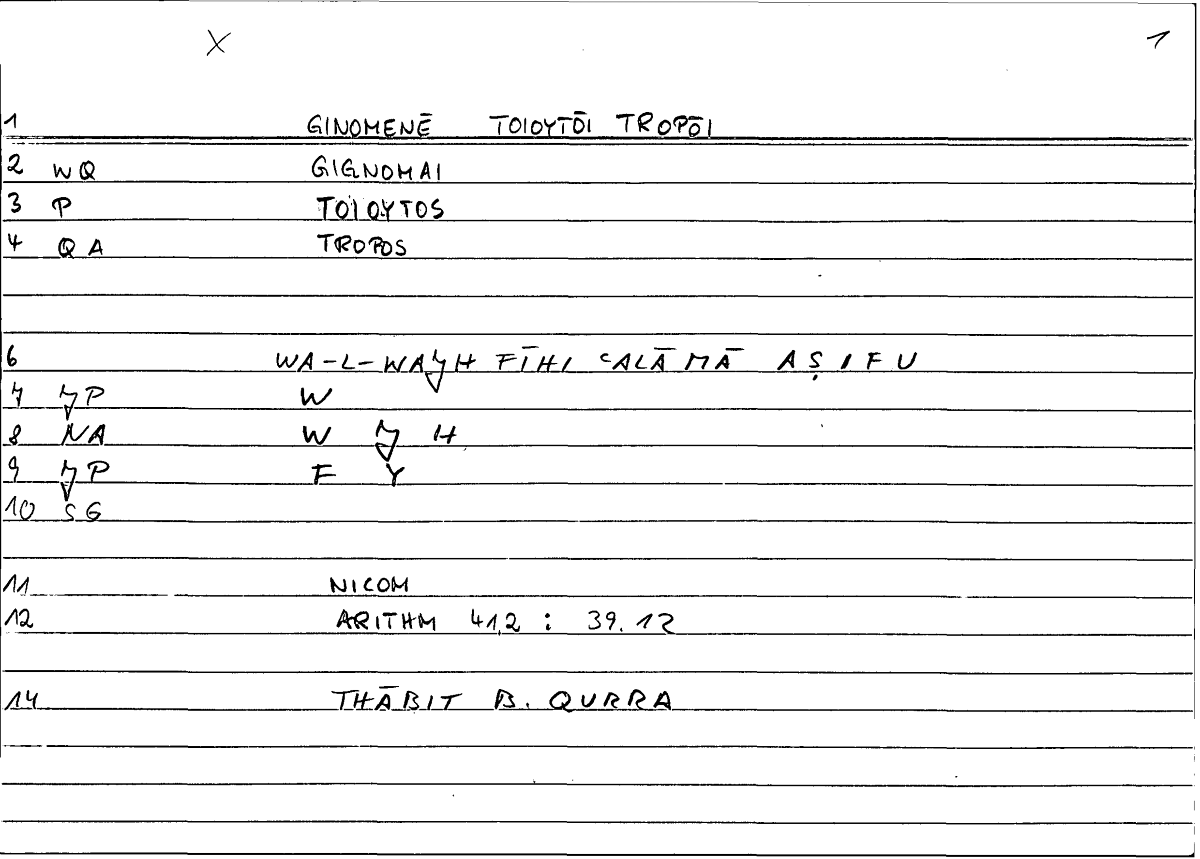 X 1
1 GINOMENĒ TOIOYTŌI TROPŌI
2 WQ GIGNOMAI
3 P TOIOYTOS
4 QA TROPOS
6 WA-L-WAǦH FĪHI ʿALĀ MĀ AṢIFU
7 ǦP W
8 NA W Ǧ H
9 ǦP F Y
10 SG
11 NICOM
12 ARITHM 41,2 : 39.12
14 THĀBIT B. QURRA